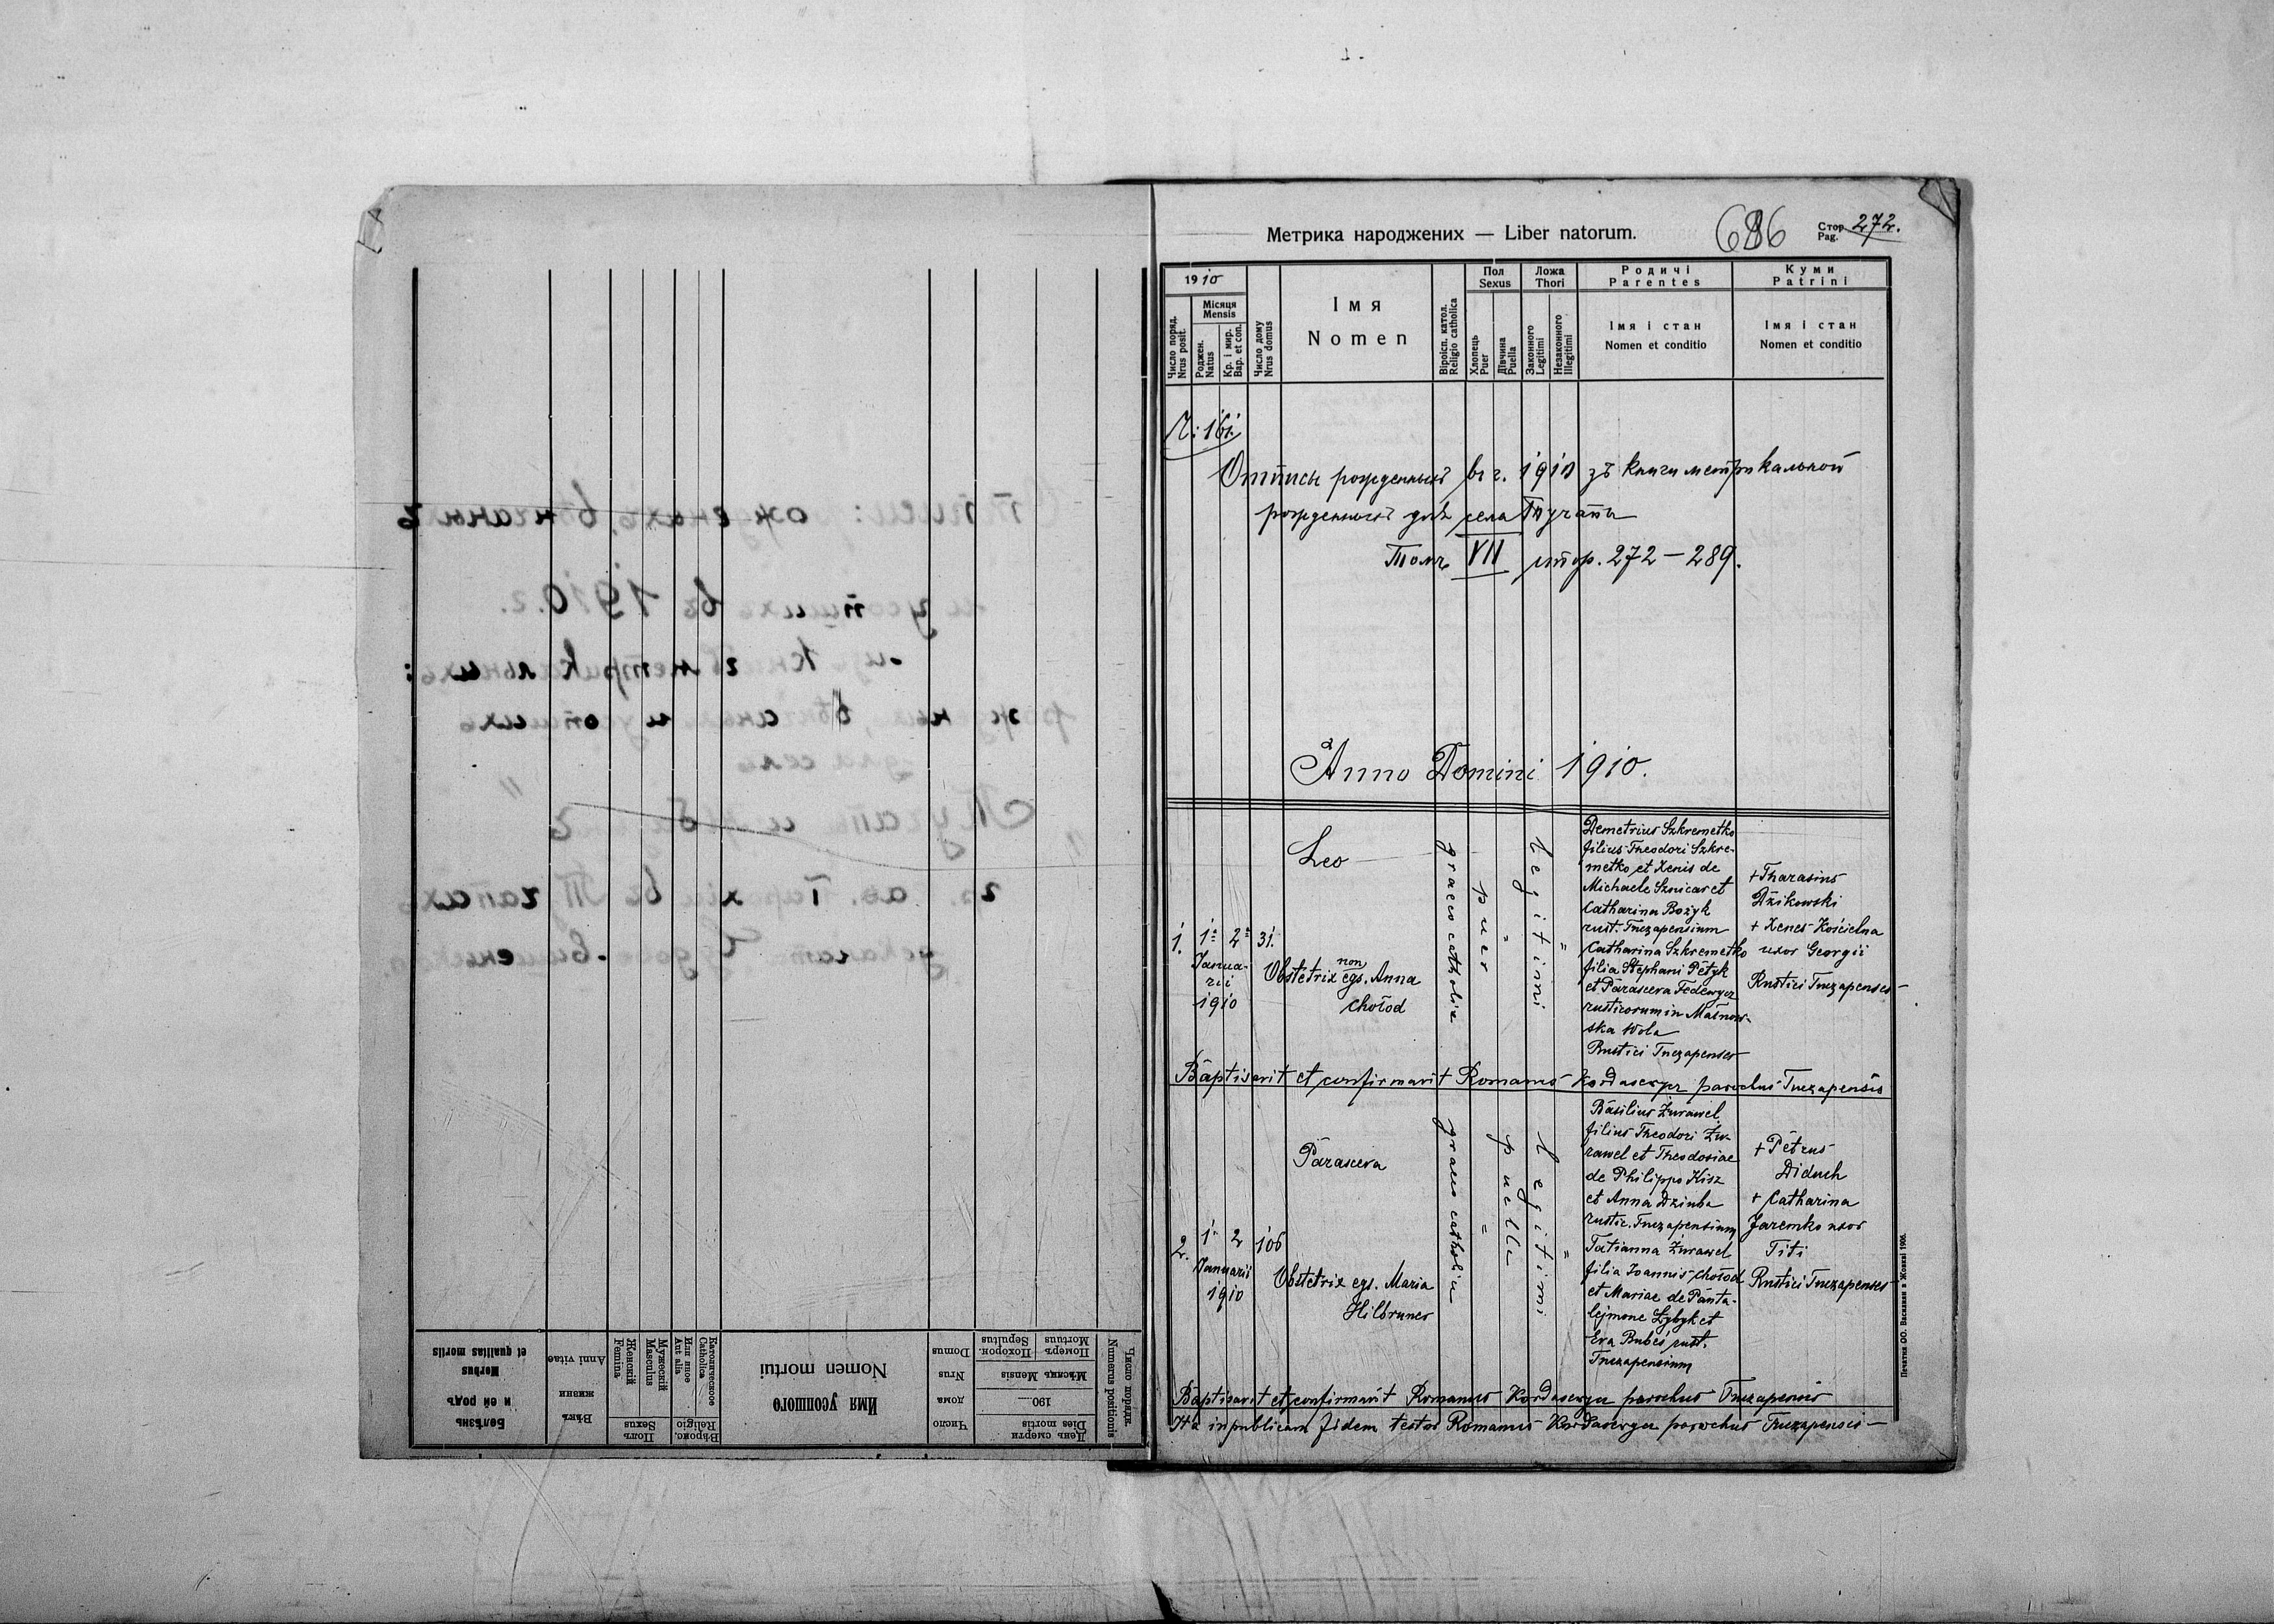 Метрика народжених — Liber natorum.
686
Стор. 272.
Pag.
1910
Місяця
Mensis
Число поряд.
Nrus posit.
Роджен.
Natus
Кр. і мир.
Bap. et con.
Число дому
Nrus domus
Імя
Nomen
Віроісп. катол.
Religio catholica
Пол
Sexus
Хлопець
Puer
Дївчина
Puella
Ложа
Thori
Законного
Legitimi
Незаконного
Illegitimi
Родичі
Parentes
Імя і стан
Nomen et conditio
Куми
Patrini
Імя і стан
Nomen et conditio
Отписы рожденныхъ въ г. 1910 зъ книги метрикальной
рожденныхъ для села Тучапы
Томъ VII стор. 272 — 289.
Anno Domini 1910.
1.
1ª 2ª
Janua-
rii
1910
31.
Leo
Obstetrix non egs. Anna
Chołod
graeco catholica
puer
Legitimi
Demetrius Szkremetko
filius Theodori Szkre-
metko et Xenis de
Michaele Sznicar et
Catharina Bożyk
rust. Tuczapensium
Catharina Szkremetko
filia Stephani Petyk
et Parasceva Fedewycz
rusticorum in Małnow-
ska Wola
Rustici Tuczapenses
+ Tharasius
Dżikowski
+ Xenes Kościelna
uxor Georgii
Rustici Tuczapenses
Baptisavit et confirmavit Romanus Kordasewycz parochus Tuczapensis
2.
1 2
Januarii
1910
106
Parasceva
Obstetrix egs. Maria
Hilbruner
graeco catholica
puella
Legitimi
Basilius Żurawel
filius Theodori Żu-
rawel et Theodosiae
de Philippo Kisz
et Anna Dziuba
rustic. Tuczapensium
Tatianna Żurawel
filia Joannis Chołod
et Mariae de Panta-
lejmone Łybyk et
Eva Bubeś rust.
Tuczapensium
+ Petrus
Diduch
+ Catharina
Jaremko uxor
Titi
Rustici Tuczapenses
Baptisavit et confirmavit Romanus Kordasewycz parochus Tuczapensis
Ita in publicam fidem testor Romanus Kordasewycz parochus Tuczapensis
Печатня ОО. Василиян в Жовкві 1906.
Число порядк.
Numerus positionis
День смерти
Dies mortis
190
Мѣсяць Mensis
Померъ
Mortuus
Похорон.
Sepultus
Число
дома
Nrus
Domus
Имя усопшого
Nomen mortui
Вѣроис.
Religio
Католическое
Catholica
Или иное
Aut alia
Полъ
Sexus
Мужескій
Masculus
Женскій
Femina
Вѣкъ
жизни
Anni vitae
Болѣзнь
и ей родъ
Morbus
et qualitas mortis